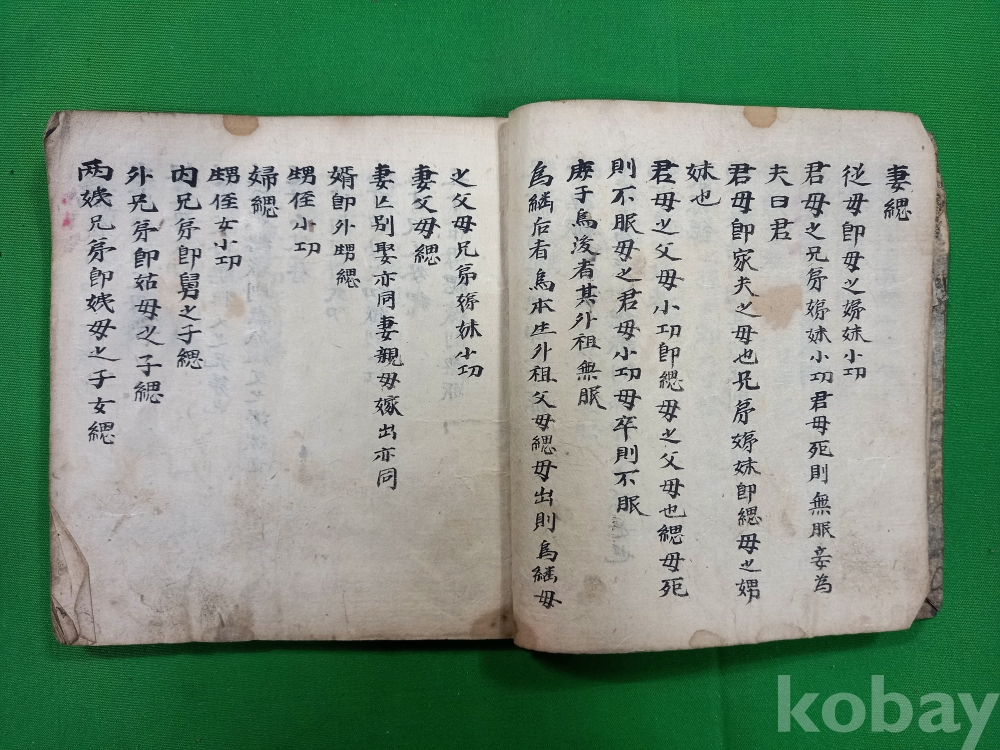 妻緦
從母即母之姊妹小功
君母之兄弟姊妹小功君母死則無服妾為
夫曰君
君母即家夫之母也兄弟姊妹即緦母之娚
妹也
君母之父母小功即緦母之父母也緦母死
則不服母之君母小功母卒則不服
庚子為後者其外祖無服
為繼后者為本生外祖父母緦母出則為繼母
之父母兄弟姊妹小功
妻父母緦
妻亡別娶亦同妻親母嫁出亦同
婿即外甥緦
甥侄小功
婦緦
甥侄女小功
內兄弟即舅之子緦
外兄弟即姑母之子緦
兩姨兄弟即姨母之子女緦
kobay